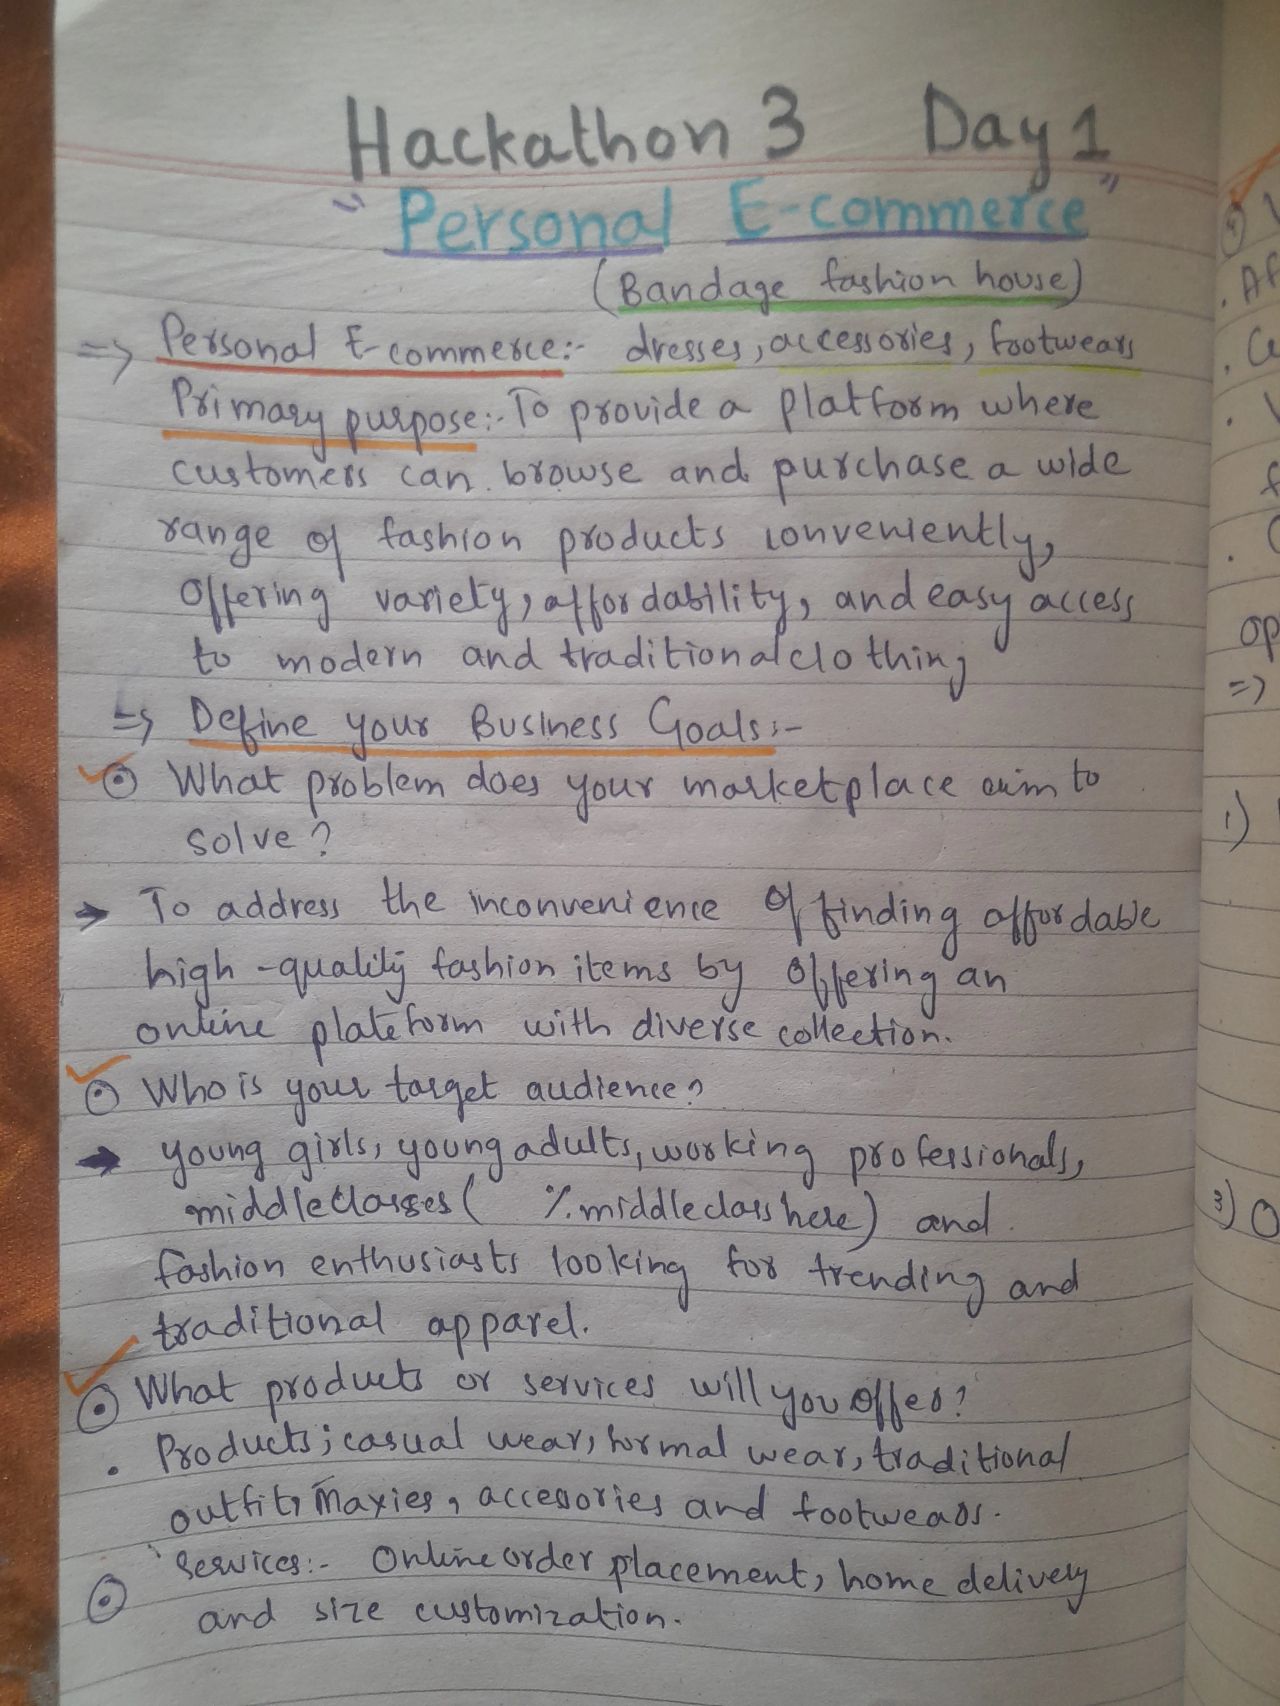 Hackathon 3 Day 1
"Personal E-commerce"
(Bandage fashion house)
=> Personal E-commerce:- dresses, accessories, footwears
Primary purpose:- To provide a platform where
customers can browse and purchase a wide
range of fashion products conveniently,
offering variety, affordability, and easy access
to modern and traditional clothing
=> Define your Business Goals:-
What problem does your marketplace aim to
solve?
→ To address the inconvenience of finding affordable
high-quality fashion items by offering an
online plateform with diverse collection.
Who is your target audience?
→ young girls, young adults, working professionals,
middleclasses ( % middleclass here) and
fashion enthusiasts looking for trending and
traditional apparel.
What products or services will you offer?
. Products; casual wear, formal wear, traditional
outfit, Maxies, accessories and footwears.
Services:- Online order placement, home delivery
and size customization.
1)
3) O
op
=>